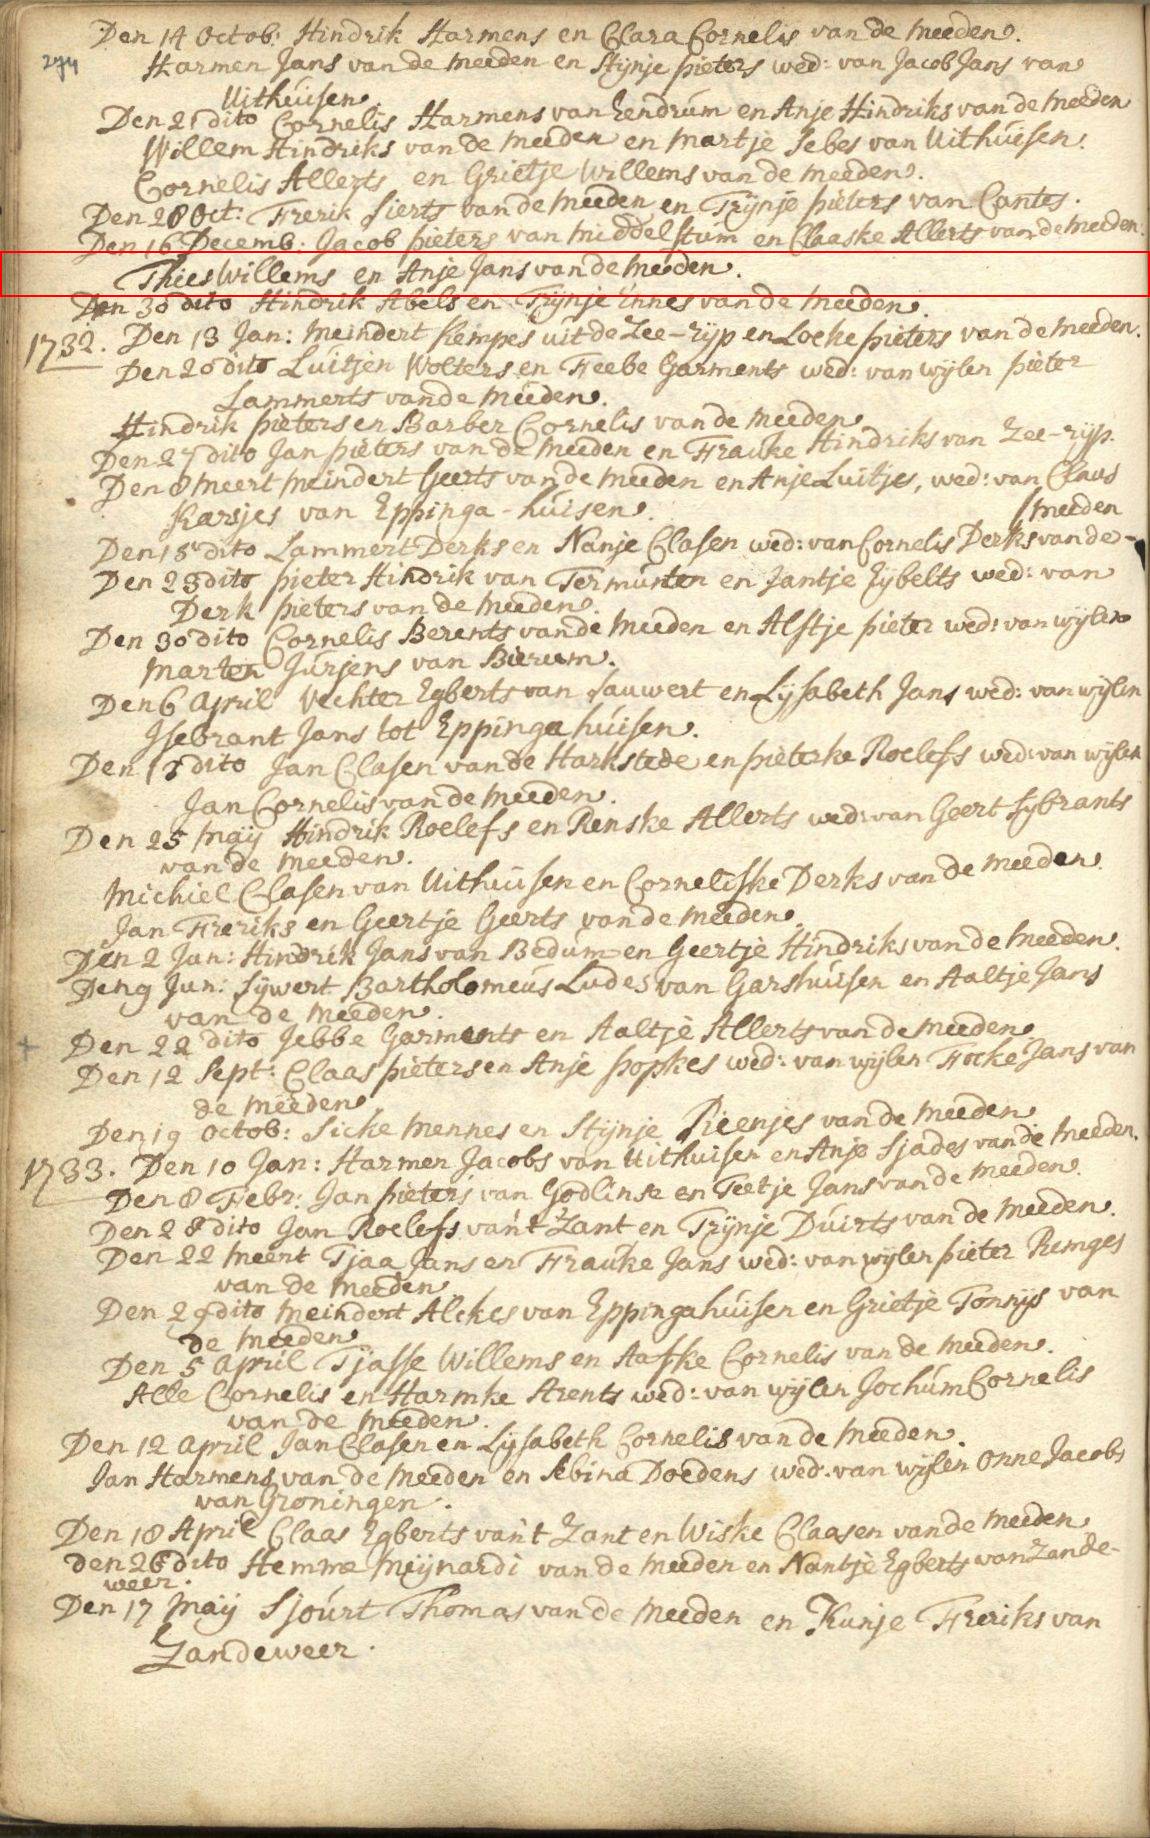 Den 14 Octob: Hindrik Harmens en Clara Cornelis van de Meeden.
274
Harmen Jans van de Meeden en Stijnje Pieters wed: van Jacob Jans van
Uithuisen.
Den 21 dito Cornelis Harmens van Zendrum en Anje Hindriks van de Meeden
Willem Hindriks van de Meeden en Martje Jebes van Uithuisen.
Cornelis Allerts en Grietje Willems van de Meeden.
Den 28 Oct: Frerik Sierts van de Meeden en Trijnje Pieters van Cantes.
Den 16 Decemb: Jacob Pieters van Middelstum en Claaske Allerts van de Meeden.
Thies Willems en Anje Jans van de Meeden.
Den 30 dito Hindrik Abels en Trijnje Ennes van de Meeden.
1732. Den 13 Jan: Meindert Kempes uit de Zee-rijp en Loeke Pieters van de Meeden.
Den 20 dito Luitjen Wolters en Feebe Garments wed: van wijlen Pieter
Lammerts van de Meeden.
Hindrik Pieters en Barber Cornelis van de Meeden.
Den 27 dito Jan Pieters van de Meeden en Frauke Hindriks van Zee-rijp.
Den 8 Meert Meindert Geerts van de Meeden en Anje Luitjes, wed: van Claas
Karsjes van Eppinga-huisen. / Meeden
Den 15 dito Lammert Derks en Nanje Clasen wed: van Cornelis Derks van de-
Den 23 dito Pieter Hindrik van Termunten en Jantje Eijbelts wed: van
Derk Pieters van de Meeden.
Den 30 dito Cornelis Berents van de Meeden en Alstje Pieter wed: van wijlen
Marten Jursens van Bierum.
Den 6 April Vechter Egberts van Sauwert en Lijsabeth Jans wed: van wijlen
Isebrant Jans tot Eppinga huisen.
Den dito Jan Clasen van de Harkstede en Pieterke Roelefs wed: van wijlen
Jan Cornelis van de Meeden.
Den 25 Maij Hindrik Roelefs en Renske Allerts wed: van Geert Sijbrants
van de Meeden.
Michiel Clasen van Uithuisen en Corneliske Derks van de Meeden.
Jan Freriks en Geertje Geerts van de Meeden.
Den 2 Jun: Hindrik Jans van Bedum en Geertje Hindriks van de Meeden.
Den 9 Jun: Sijwert Bartholomeus Ludes van Garshuisen en Aaltje Jans
van de Meeden.
Den 22 dito Jebbe Garments en Aaltje Allerts van de Meeden.
Den 12 Sept: Claas Pieters en Anje Popkes wed: van wijlen Focke Jans van
de Meeden.
Den 19 Octob: Sicke Mennes en Stijnje Rieenjes van de Meeden.
1733. Den 10 Jan: Harmen Jacobs van Uithuisen en Anje Sjades van de Meeden.
Den 8 Febr: Jan Pieters van Godlinse en Teetje Jans van de Meeden.
Den 28 dito Jan Roelefs van 't Zant en Trijnje Duirts van de Meeden.
Den 22 Meert Tjaa Jans en Frauke Jans wed: van wijlen Pieter Remges
van de Meeden.
Den 29 dito Meindert Alckes van Eppingahuisen en Grietje Tonnijs van
de Meeden.
Den 5 April Tjasse Willems en Aafke Cornelis van de Meeden.
Alle Cornelis en Harmke Arents wed: van wijlen Jochum Cornelis
van de Meeden.
Den 12 April Jan Clasen en Lijsabeth Cornelis van de Meeden.
Jan Harmens van de Meeden en Sebina Doedens wed: van wijlen Onne Jacobs
van Groningen.
Den 18 April Claas Egberts van 't Zant en Wiske Claasen van de Meeden
Den 26 dito Hemme Meijnardi van de Meeden en Nantje Egberts van Zande-
weer.
Den 17 Maij Sjourt Thomas van de Meeden en Kunje Freriks van
Zandeweer.